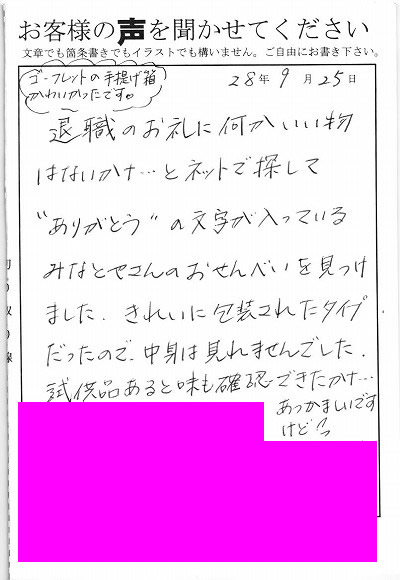 お客様の声を聞かせてください
文章でも箇条書きでもイラストでも構いません。ご自由にお書き下さい。
ゴーフレットの手提げ箱
かわいかったです。
28年9月25日
退職のお礼に何かいい物
はないかナ…とネットで探して
"ありがとう"の文字が入っている
みなとやさんのおせんべいを見つけ
ました。きれいに包装されたタイプ
だったので、中身は見れませんでした。
試供品あると味も確認できたかナ…
あつかましいです
けど